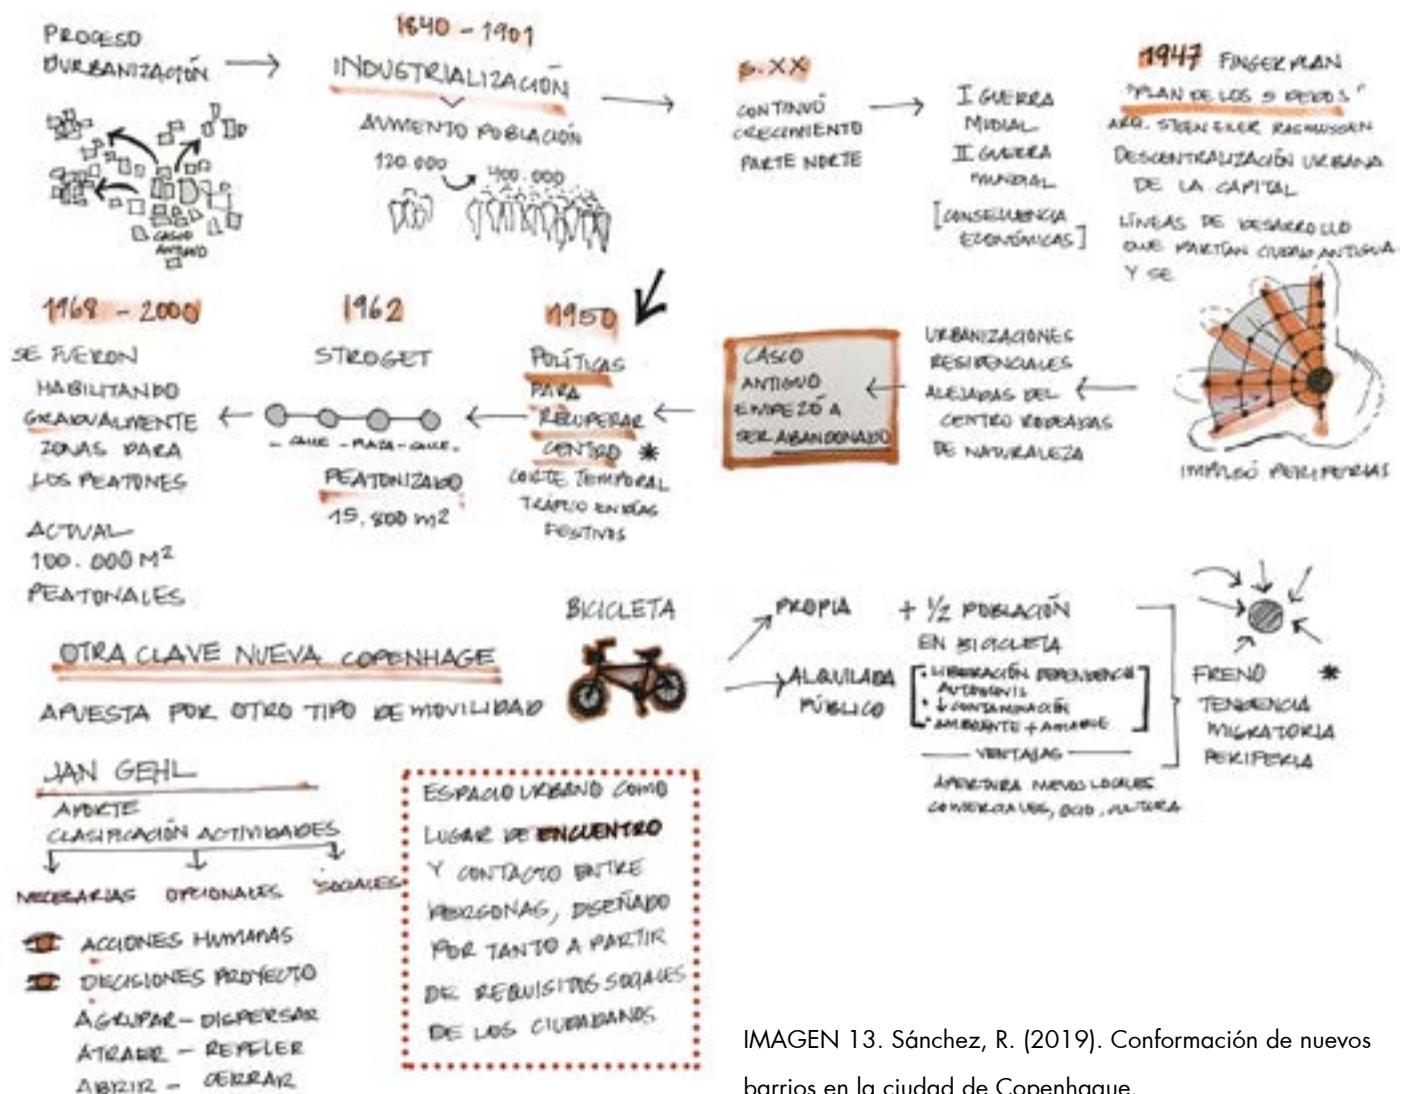 PROCESO
DURBANIZACIÓN
CASCO
ANTIGUO
1840 - 1901
INDUSTRIALIZACIÓN
AUMENTO POBLACIÓN
120.000
400.000
S.XX
CONTINUÓ
CRECIMIENTO
PARTE NORTE
I GUERRA
MUDIAL
II GUERRA
MUNDIAL
[CONSECUENCIA
ECONÓMICAS]
1947 FINGERPLAN
"PLAN DE LOS 5 DEDOS"
ARQ. STEEN EILER RASMUSSEN
DESCENTRALIZACIÓN URBANA
DE LA CAPITAL
LÍNEAS DE DESARROLLO
QUE PARTÍAN CIUDAD ANTIGUA
Y SE
IMPULSÓ PERIFERIAS
URBANIZACIONES
RESIDENCIALES
ALEJADAS DEL
CENTRO RODEADAS
DE NATURALEZA
CASCO
ANTIGUO
EMPEZÓ A
SER ABANDONADO
1950
POLÍTICAS
PARA
RECUPERAR
CENTRO *
CORTE TEMPORAL
TRÁFICO EN DÍAS
FESTIVOS
1962
STROGET
- CALLE - PLAZA - CALLE -
PEATONIZADO
15.800 m2
1968 - 2000
SE FUERON
HABILITANDO
GRADUALMENTE
ZONAS PARA
LOS PEATONES
ACTUAL
100.000 M2
PEATONALES
OTRA CLAVE NUEVA COPENHAGE
APUESTA POR OTRO TIPO DE MOVILIDAD
BICICLETA
PROPIA
ALQUILADA
PÚBLICO
+ 1/2 POBLACIÓN
EN BICICLETA
· LIBERACIÓN DEPENDENCIA
AUTOMOVIL
· ↓ CONTAMINACIÓN
· AMBIENTE + AMABLE
VENTAJAS
APERTURA NUEVOS LOCALES
COMERCIALES, OCIO, CULTURA
FRENO *
TENDENCIA
MIGRATORIA
PERIFERIA
JAN GEHL
APORTE
CLASIFICACIÓN ACTIVIDADES
NECESARIAS OPCIONALES SOCIALES
ACCIONES HUMANAS
DECISIONES PROYECTO
AGRUPAR - DISPERSAR
ATRAER - REPELER
ABRIR - CERRAR
ESPACIO URBANO COMO
LUGAR DE ENCUENTRO
Y CONTACTO ENTRE
PERSONAS, DISEÑADO
POR TANTO A PARTIR
DE REQUISITOS SOCIALES
DE LOS CIUDADANOS
IMAGEN 13. Sánchez, R. (2019). Conformación de nuevos
barrios en la ciudad de Copenhague.